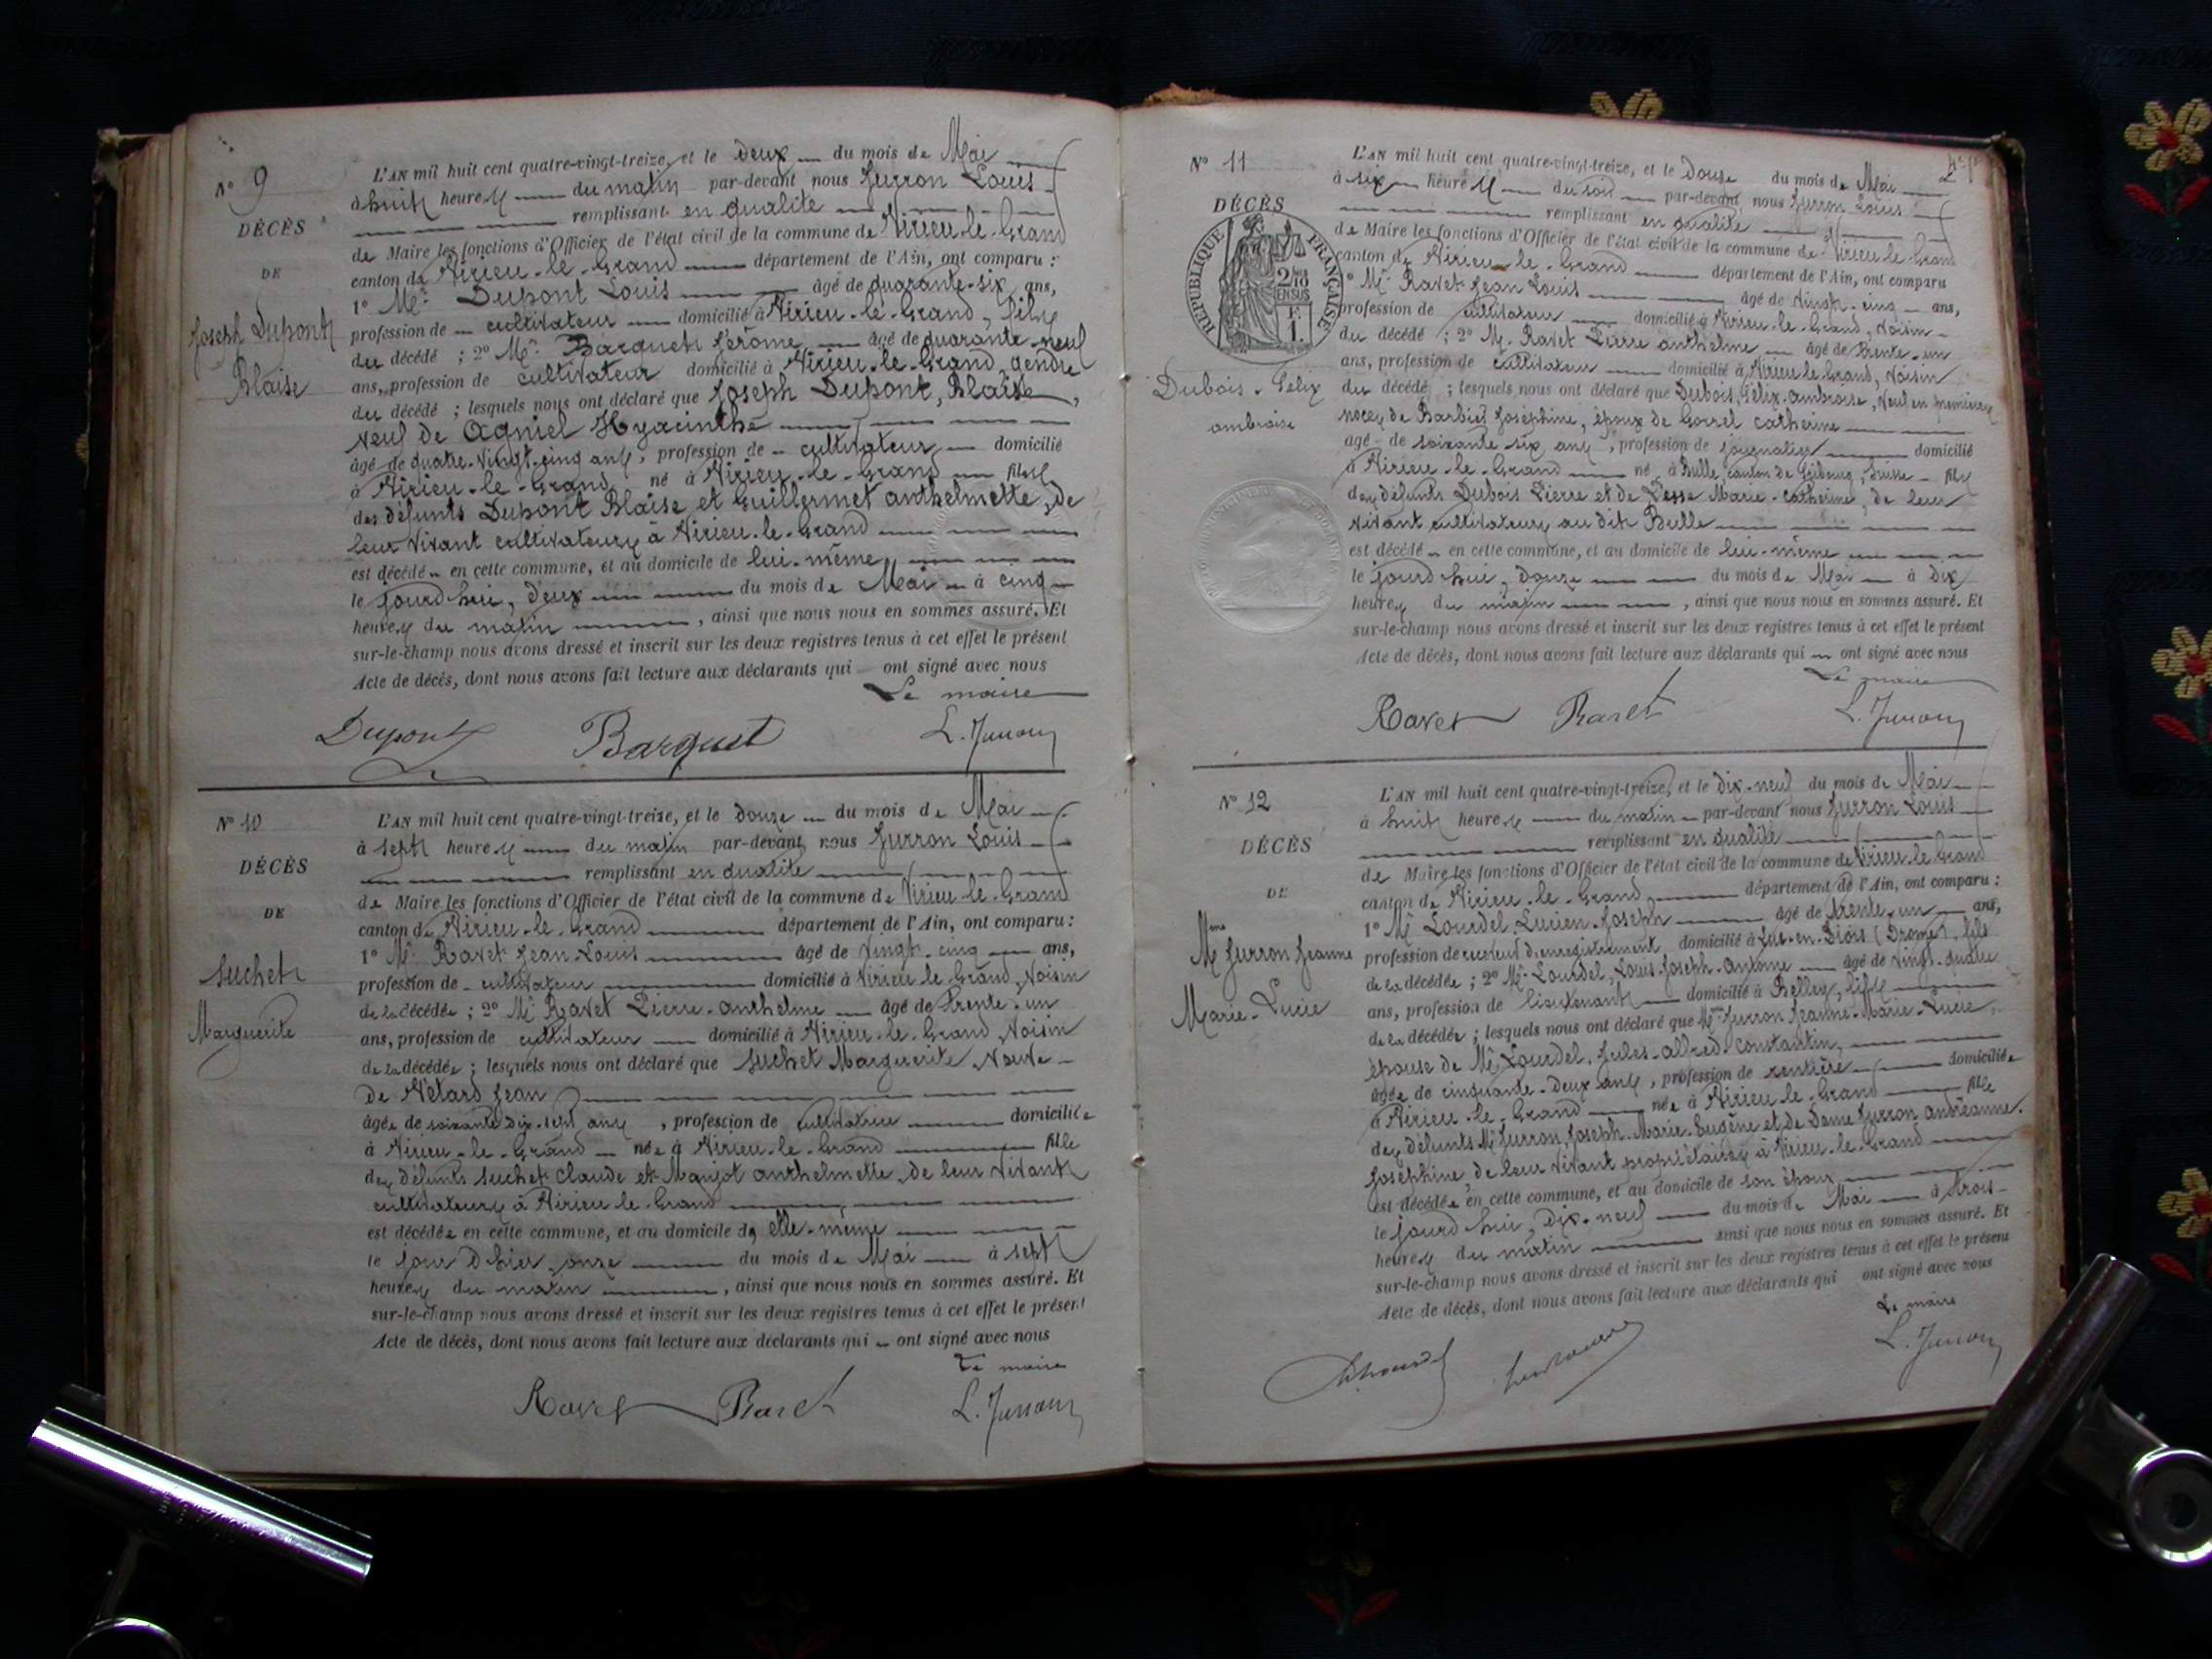 N° 9
DÉCÈS
DE
Joseph Dupont
Blaise
L'AN mil huit cent quatre-vingt-treize, et le deux du mois de Mai
à huit heures du matin par-devant nous Jurron Louis
remplissant en qualité
de Maire les fonctions d'Officier de l'état civil de la commune de Virieu-le-Grand
canton de Virieu-le-Grand département de l'Ain, ont comparu :
1° Mr Dupont Louis âgé de quarante-six ans,
profession de cultivateur domicilié à Virieu-le-Grand, fils
du décédé ; 2° Mr Barquet Jérôme âgé de quarante-neuf
ans, profession de cultivateur domicilié à Virieu-le-Grand, gendre
du décédé ; lesquels nous ont déclaré que Joseph Dupont, Blaise,
veuf de Agniel Hyacinthe
âgé de quatre-vingt-cinq ans, profession de cultivateur domicilié
à Virieu-le-Grand né à Virieu-le-Grand fils
des défunts Dupont Blaise et Guillermet anthelmette, de
leur vivant cultivateurs à Virieu-le-Grand
est décédé en cette commune, et au domicile de lui-même
le jourd'hui, deux du mois de Mai à cinq
heures du matin, ainsi que nous nous en sommes assuré. Et
sur-le-champ nous avons dressé et inscrit sur les deux registres tenus à cet effet le présent
Acte de décès, dont nous avons fait lecture aux déclarants qui ont signé avec nous
Le maire
Dupont Barquet L. Jurron
N° 10
DÉCÈS
DE
Suchet
Marguerite
L'AN mil huit cent quatre-vingt-treize, et le douze du mois de Mai
à sept heures du matin par-devant nous Jurron Louis
remplissant en qualité
de Maire les fonctions d'Officier de l'état civil de la commune de Virieu-le-Grand
canton de Virieu-le-Grand département de l'Ain, ont comparu :
1° Mr Ravet Jean Louis âgé de vingt-cinq ans,
profession de cultivateur domicilié à Virieu-le-Grand, voisin
de la décédée ; 2° Mr Ravet Pierre-anthelme âgé de trente-un
ans, profession de cultivateur domicilié à Virieu-le-Grand, voisin
de la décédée ; lesquels nous ont déclaré que Suchet Marguerite, veuve
de Vétard Jean
âgée de soixante dix-sept ans, profession de cultivatrice domiciliée
à Virieu-le-Grand née à Virieu-le-Grand fille
des défunts Suchet Claude et Manjot anthelmette, de leur vivant
cultivateurs à Virieu-le-Grand
est décédée en cette commune, et au domicile de elle-même
le jour d'hier, onze du mois de Mai à sept
heures du matin, ainsi que nous nous en sommes assuré. Et
sur-le-champ nous avons dressé et inscrit sur les deux registres tenus à cet effet le présent
Acte de décès, dont nous avons fait lecture aux déclarants qui ont signé avec nous
Le maire
Ravet Ravet L. Jurron
N° 11
DÉCÈS
RÉPUBLIQUE FRANÇAISE
2/10
EN SUS
F.
1.
Dubois-Félix
ambroise
L'AN mil huit cent quatre-vingt-treize, et le douze du mois de Mai
à six heures du soir par-devant nous Jurron Louis
remplissant en qualité
de Maire les fonctions d'Officier de l'état civil de la commune de Virieu-le-Grand
canton de Virieu-le-Grand département de l'Ain, ont comparu
1° Mr Ravet Jean Louis âgé de vingt-cinq ans,
profession de cultivateur domicilié à Virieu-le-Grand, voisin
du décédé ; 2° Mr Ravet Pierre anthelme âgé de trente-un
ans, profession de cultivateur domicilié à Virieu-le-Grand, voisin
du décédé ; lesquels nous ont déclaré que Dubois, Félix-ambroise, veuf en premières
noces de Barbier Joséphine, époux de Gorrel Catherine
âgé de soixante six ans, profession de journalier domicilié
à Virieu-le-Grand né à Bulle, canton de Fribourg, Suisse fils
des défunts Dubois Pierre et de Pesse Marie-Catherine, de leur
vivant cultivateurs au dit Bulle
est décédé en cette commune, et au domicile de lui-même
le jourd'hui, douze du mois de Mai à dix
heures du matin, ainsi que nous nous en sommes assuré. Et
sur-le-champ nous avons dressé et inscrit sur les deux registres tenus à cet effet le présent
Acte de décès, dont nous avons fait lecture aux déclarants qui ont signé avec nous
Le maire
Ravet Ravet L. Jurron
N° 12
DÉCÈS
DE
Mme Jurron Jeanne
Marie-Lucie
L'AN mil huit cent quatre-vingt-treize, et le dix-neuf du mois de Mai
à huit heures du matin par-devant nous Jurron Louis
remplissant en qualité
de Maire les fonctions d'Officier de l'état civil de la commune de Virieu-le-Grand
canton de Virieu-le-Grand département de l'Ain, ont comparu :
1° Mr Lourdel Lucien-Joseph âgé de trente-un ans,
profession de receveur d'enregistrement, domicilié à Luc-en-Diois (Drôme), fils
de la décédée ; 2° Mr Lourdel, Louis-Joseph-Antoine âgé de vingt-quatre
ans, profession de lieutenant domicilié à Belley, fils
de la décédée ; lesquels nous ont déclaré que Mme Jurron Jeanne-Marie-Lucie,
épouse de Mr Lourdel, Jules-alfred-constantin,
âgée de cinquante-deux ans, profession de rentière domiciliée
à Virieu-le-Grand née à Virieu-le-Grand fille
des défunts Mr Jurron, Joseph-Marie-Eugène et de Dame Jurron andréanne-
Joséphine de leur vivant propriétaires à Virieu-le-Grand
est décédée en cette commune, et au domicile de son époux
le jourd'hui, dix-neuf du mois de Mai à trois
heures du matin ainsi que nous nous en sommes assuré. Et
sur-le-champ nous avons dressé et inscrit sur les deux registres tenus à cet effet le présent
Acte de décès, dont nous avons fait lecture aux déclarants qui ont signé avec nous
Le maire
L. Jurron